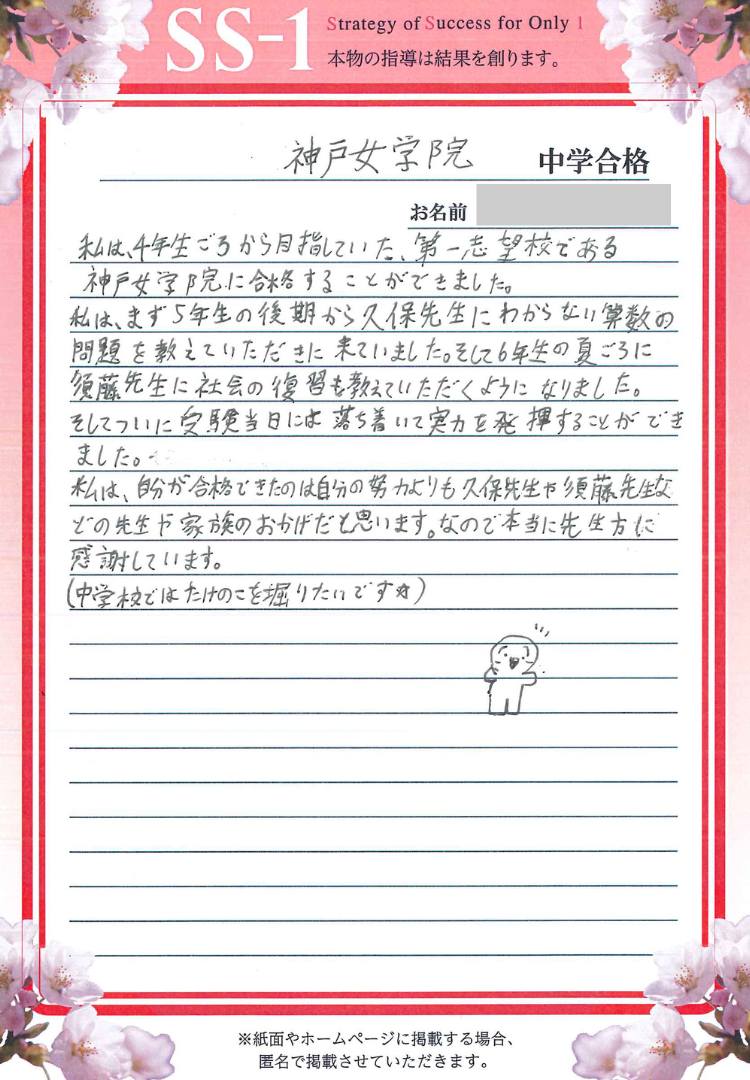 SS-1
Strategy of Success for Only 1
本物の指導は結果を創ります。
神戸女学院 中学合格
お名前
私は、4年生ごろから目指していた、第一志望校である
神戸女学院に合格することができました。
私は、まず5年生の後期から久保先生にわからない算数の
問題を教えていただきに来ていました。そして6年生の夏ごろに
須藤先生に社会の復習も教えていただくようになりました。
そしてついに受験当日には落ち着いて実力を発揮することができ
ました。
私は、自分が合格できたのは自分の努力よりも久保先生や須藤先生な
どの先生や家族のおかげだと思います。なので本当に先生方に
感謝しています。
(中学校ではたけのこを掘りたいです☆)
※紙面やホームページに掲載する場合、
匿名で掲載させていただきます。